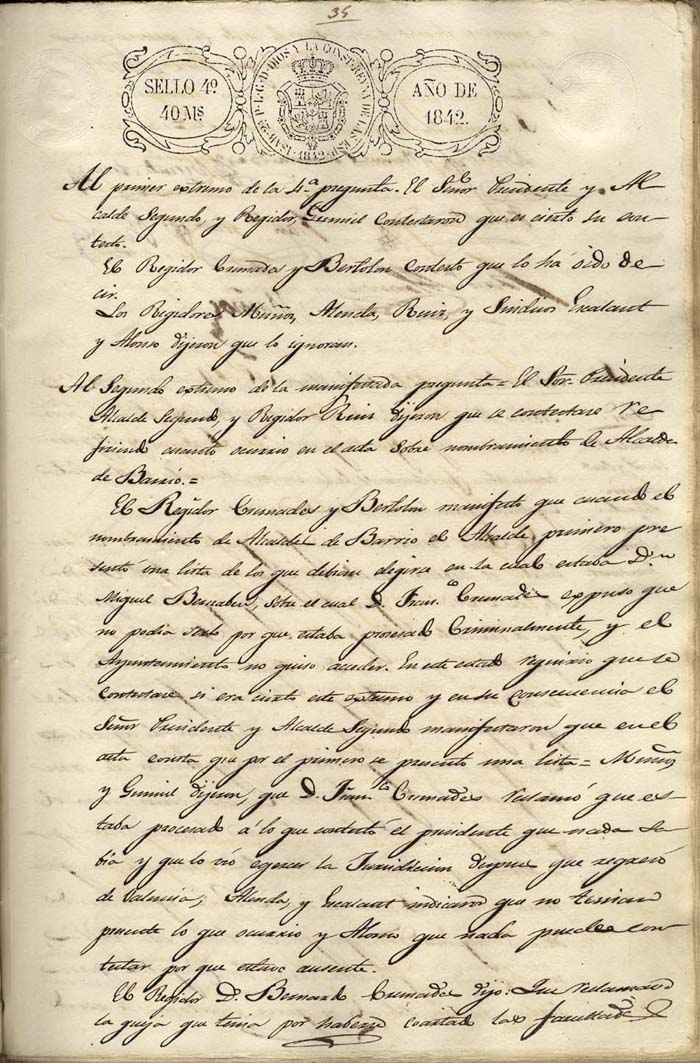 35
SELLO 4º
40 Ms
ISAB. 2ª P. L. G. D. DIOS Y LA CONST. REYNA DE LAS ESP.
1842
AÑO DE
1842.
Al primer extremo de la 4.ª pregunta. El Señor Presidente y Al
calde Segundo, y Regidor, Gumiel Contestaron que es cierto su con-
testo.
El Regidor Cremades y Bertolon Contesto que lo ha oido de
cir.
Los Rigidores Muñoz, Alenda, Ruiz, y Sindicos Escalant
y Alonso dijeron que lo ignoran.
Al Segundo extremo de la manifestada pregunta = El Sor. Presidente
Alcalde Segundo, y Regidor Ruiz dijeron que se contestase re
firiendo cuanto ocurrio en el acta sobre nombramiento de Alcaldes
de Barrio. =
El Regidor Cremades y Bertolon manifesto que cuando el
nombramiento de Alcaldes de Barrio el Alcalde primero pre
sentó una lista de los que debian elegirse en la cual estaba D.n
Miguel Bernabeu, sobre el cual D. Fran.co Cremades expuso que
no podia serlo por que estaba procesado Criminalmente, y el
Ayuntamiento no quiso acceder. En este estado requirio que se
contestase si era cierto este extremo y en su consecuencia el
Señor Presidente y Alcalde Segundo manifestaron que en el
acta consta que por el primero se presento una lista = Muñoz
y Gumiel dijeron, que D. Fran.co Cremades reclamó que es-
taba procesado á lo que contestó el presidente que nada sa
bia y que lo vió egercer la Jurisdiccion despues que regresó
de Valencia; Alenda, y Escalant indicaron que no tenian
presente lo que ocurrio y Alonso que nada puede con
testar por que estuvo ausente.
El Regidor D. Bernardo Cremades dijo: Que reclamando
la queja que tenia por haberse coartado las facultades